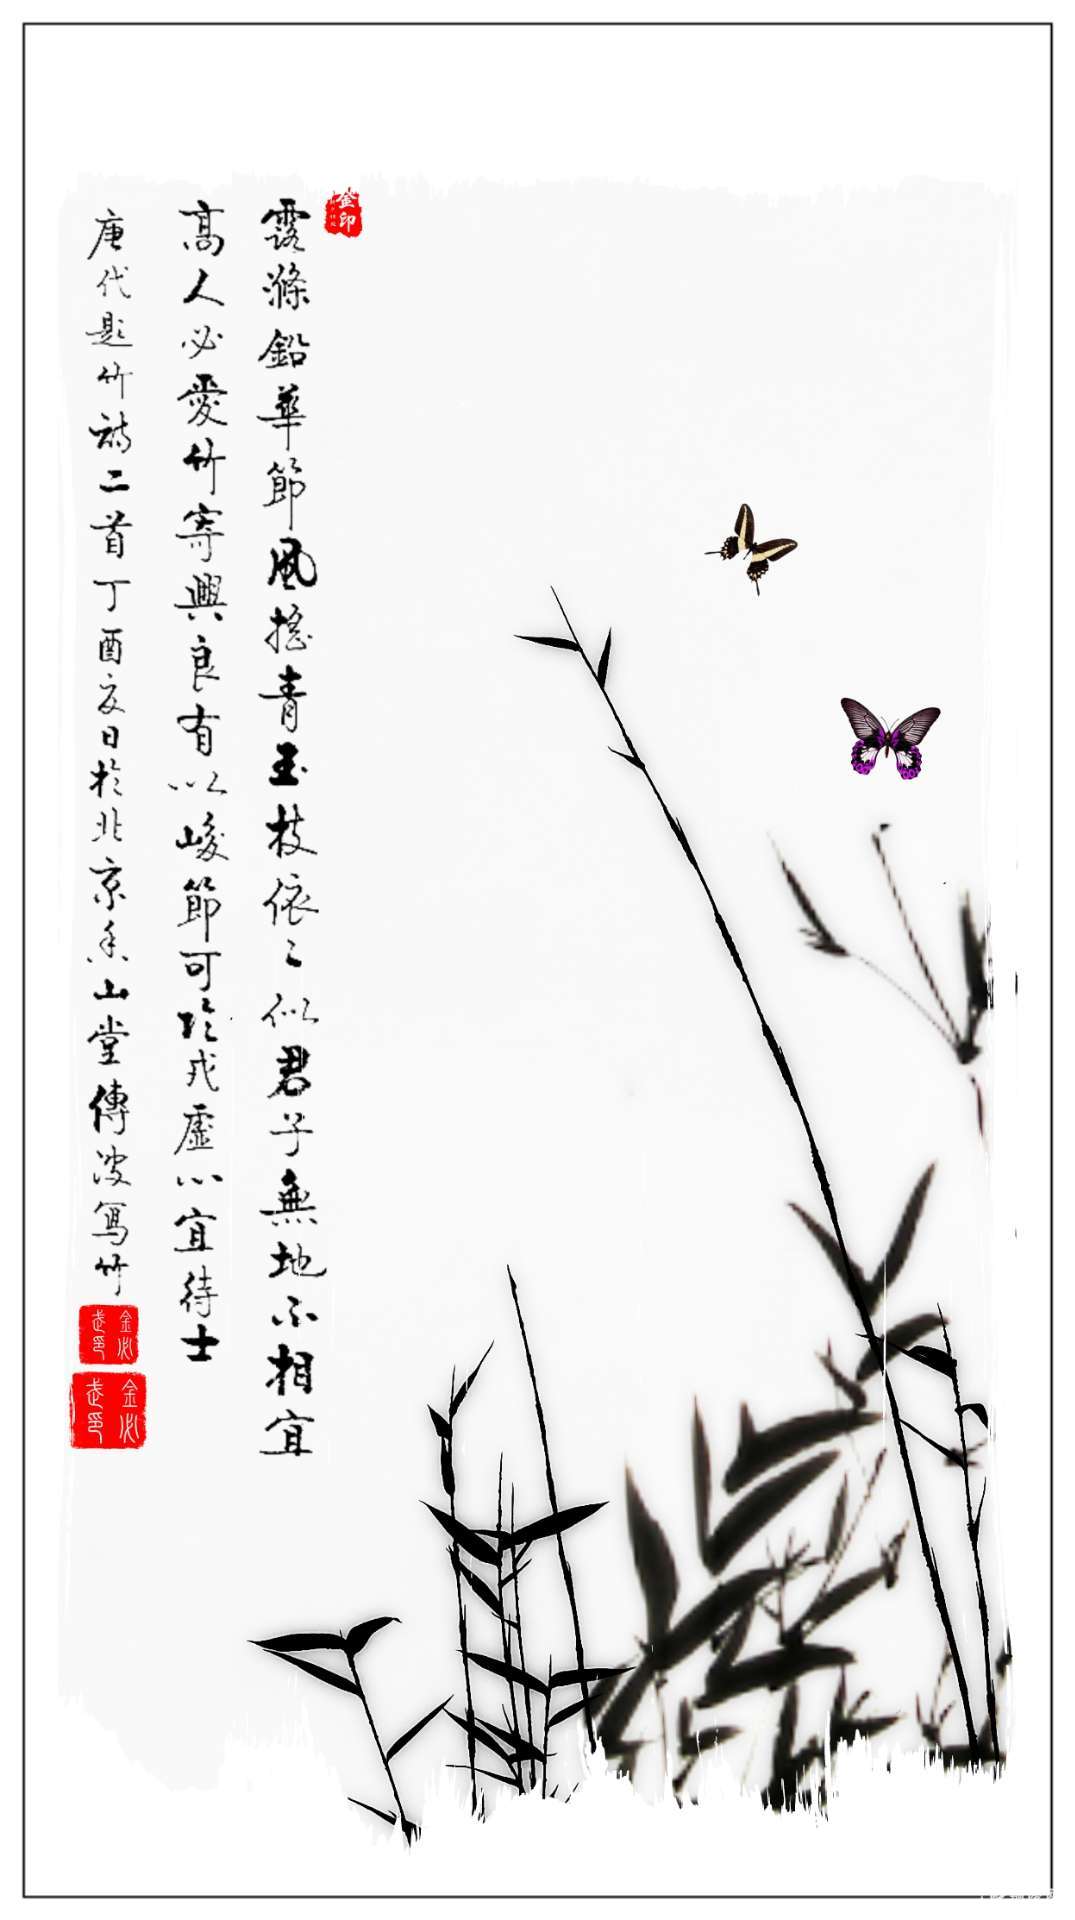 露滌鉛華節風搖青玉枝依〻似君子無地不相宜
高人必愛竹寄興良有以峻節可於戎虛心宜待士
唐代題竹詩二首丁酉亥日於北京香山堂傳波寫竹
金印
金武印
金武印